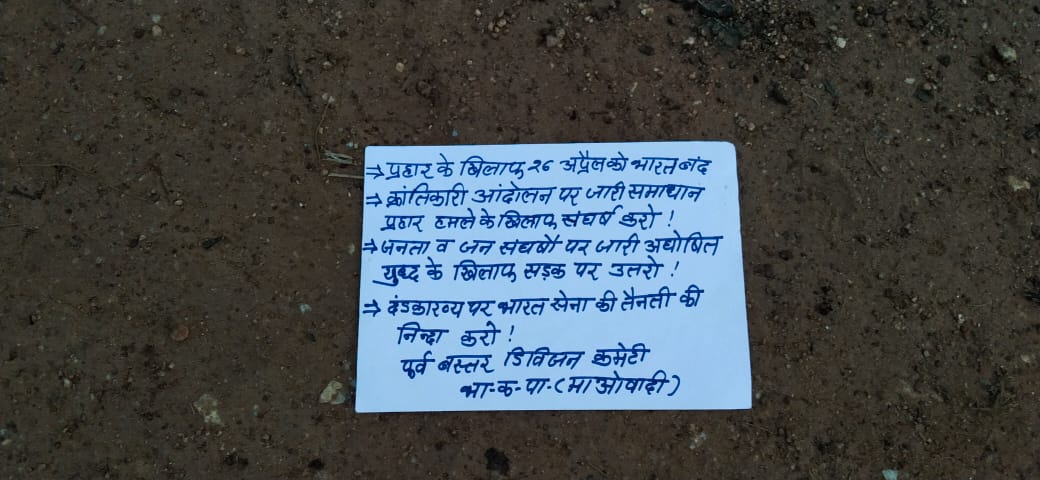 ⇒ प्रहार के खिलाफ 26 अप्रैल को भारत बंद
⇒ क्रांतिकारी आंदोलन पर जारी समाधान
प्रहार हमले के खिलाफ संघर्ष करो !
⇒ जनता व जन संघर्षों पर जारी अघोषित
युध्द के खिलाफ सड़क पर उतरो !
⇒ दंडकारण्य पर भारत सेना की तैनती की
निन्दा करो !
पूर्व बस्तर डिविजन कमेटी
भा-क-पा-(माओवादी)